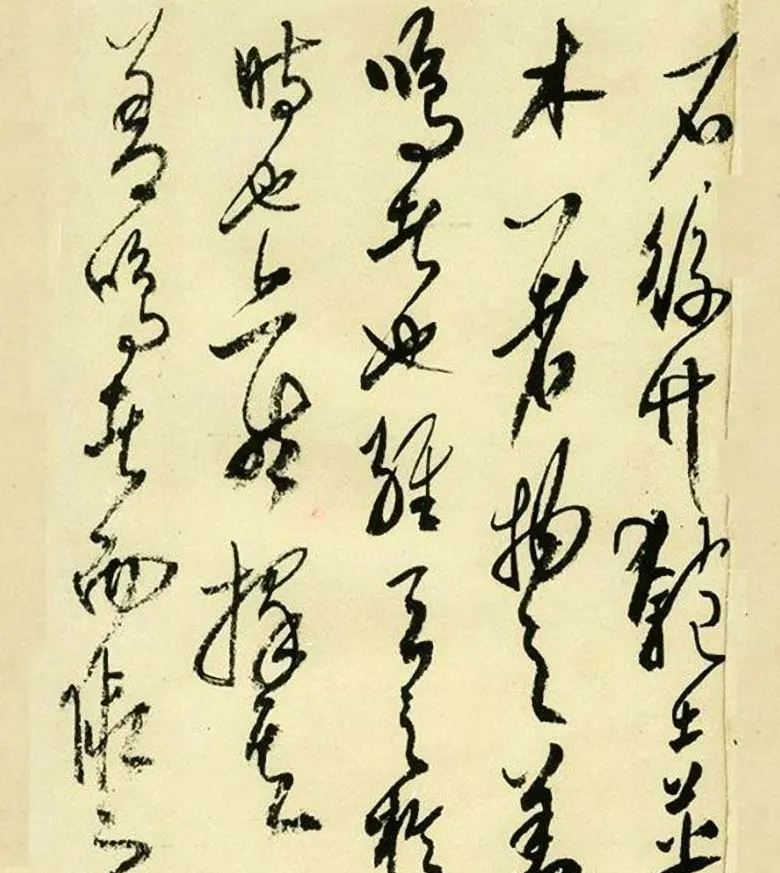 石絲竹匏土革
木八者物之善
鳴者也維天之於
時也亦然擇其
善鳴者而假之